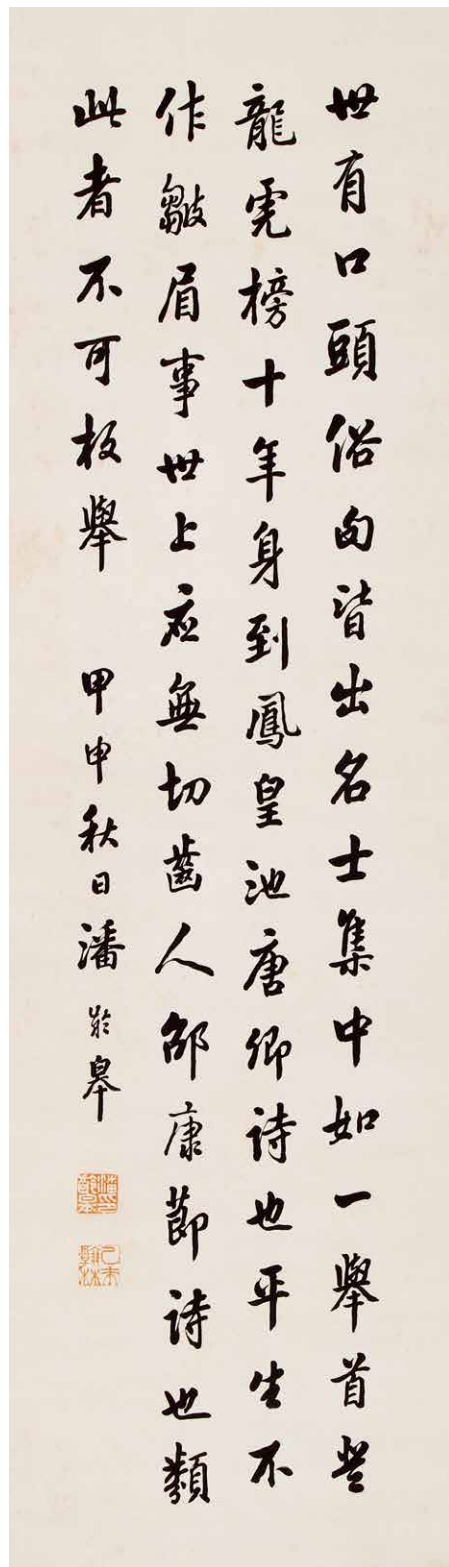 世有口頭俗句皆出名士集中如一舉首登
龍虎榜十年身到鳳皇池唐卿詩也平生不
作皺眉事世上应無切齒人邵康節詩也類
此者不可枚舉 甲申秋日潘齡皋
潘印齡皋
乙未翰林